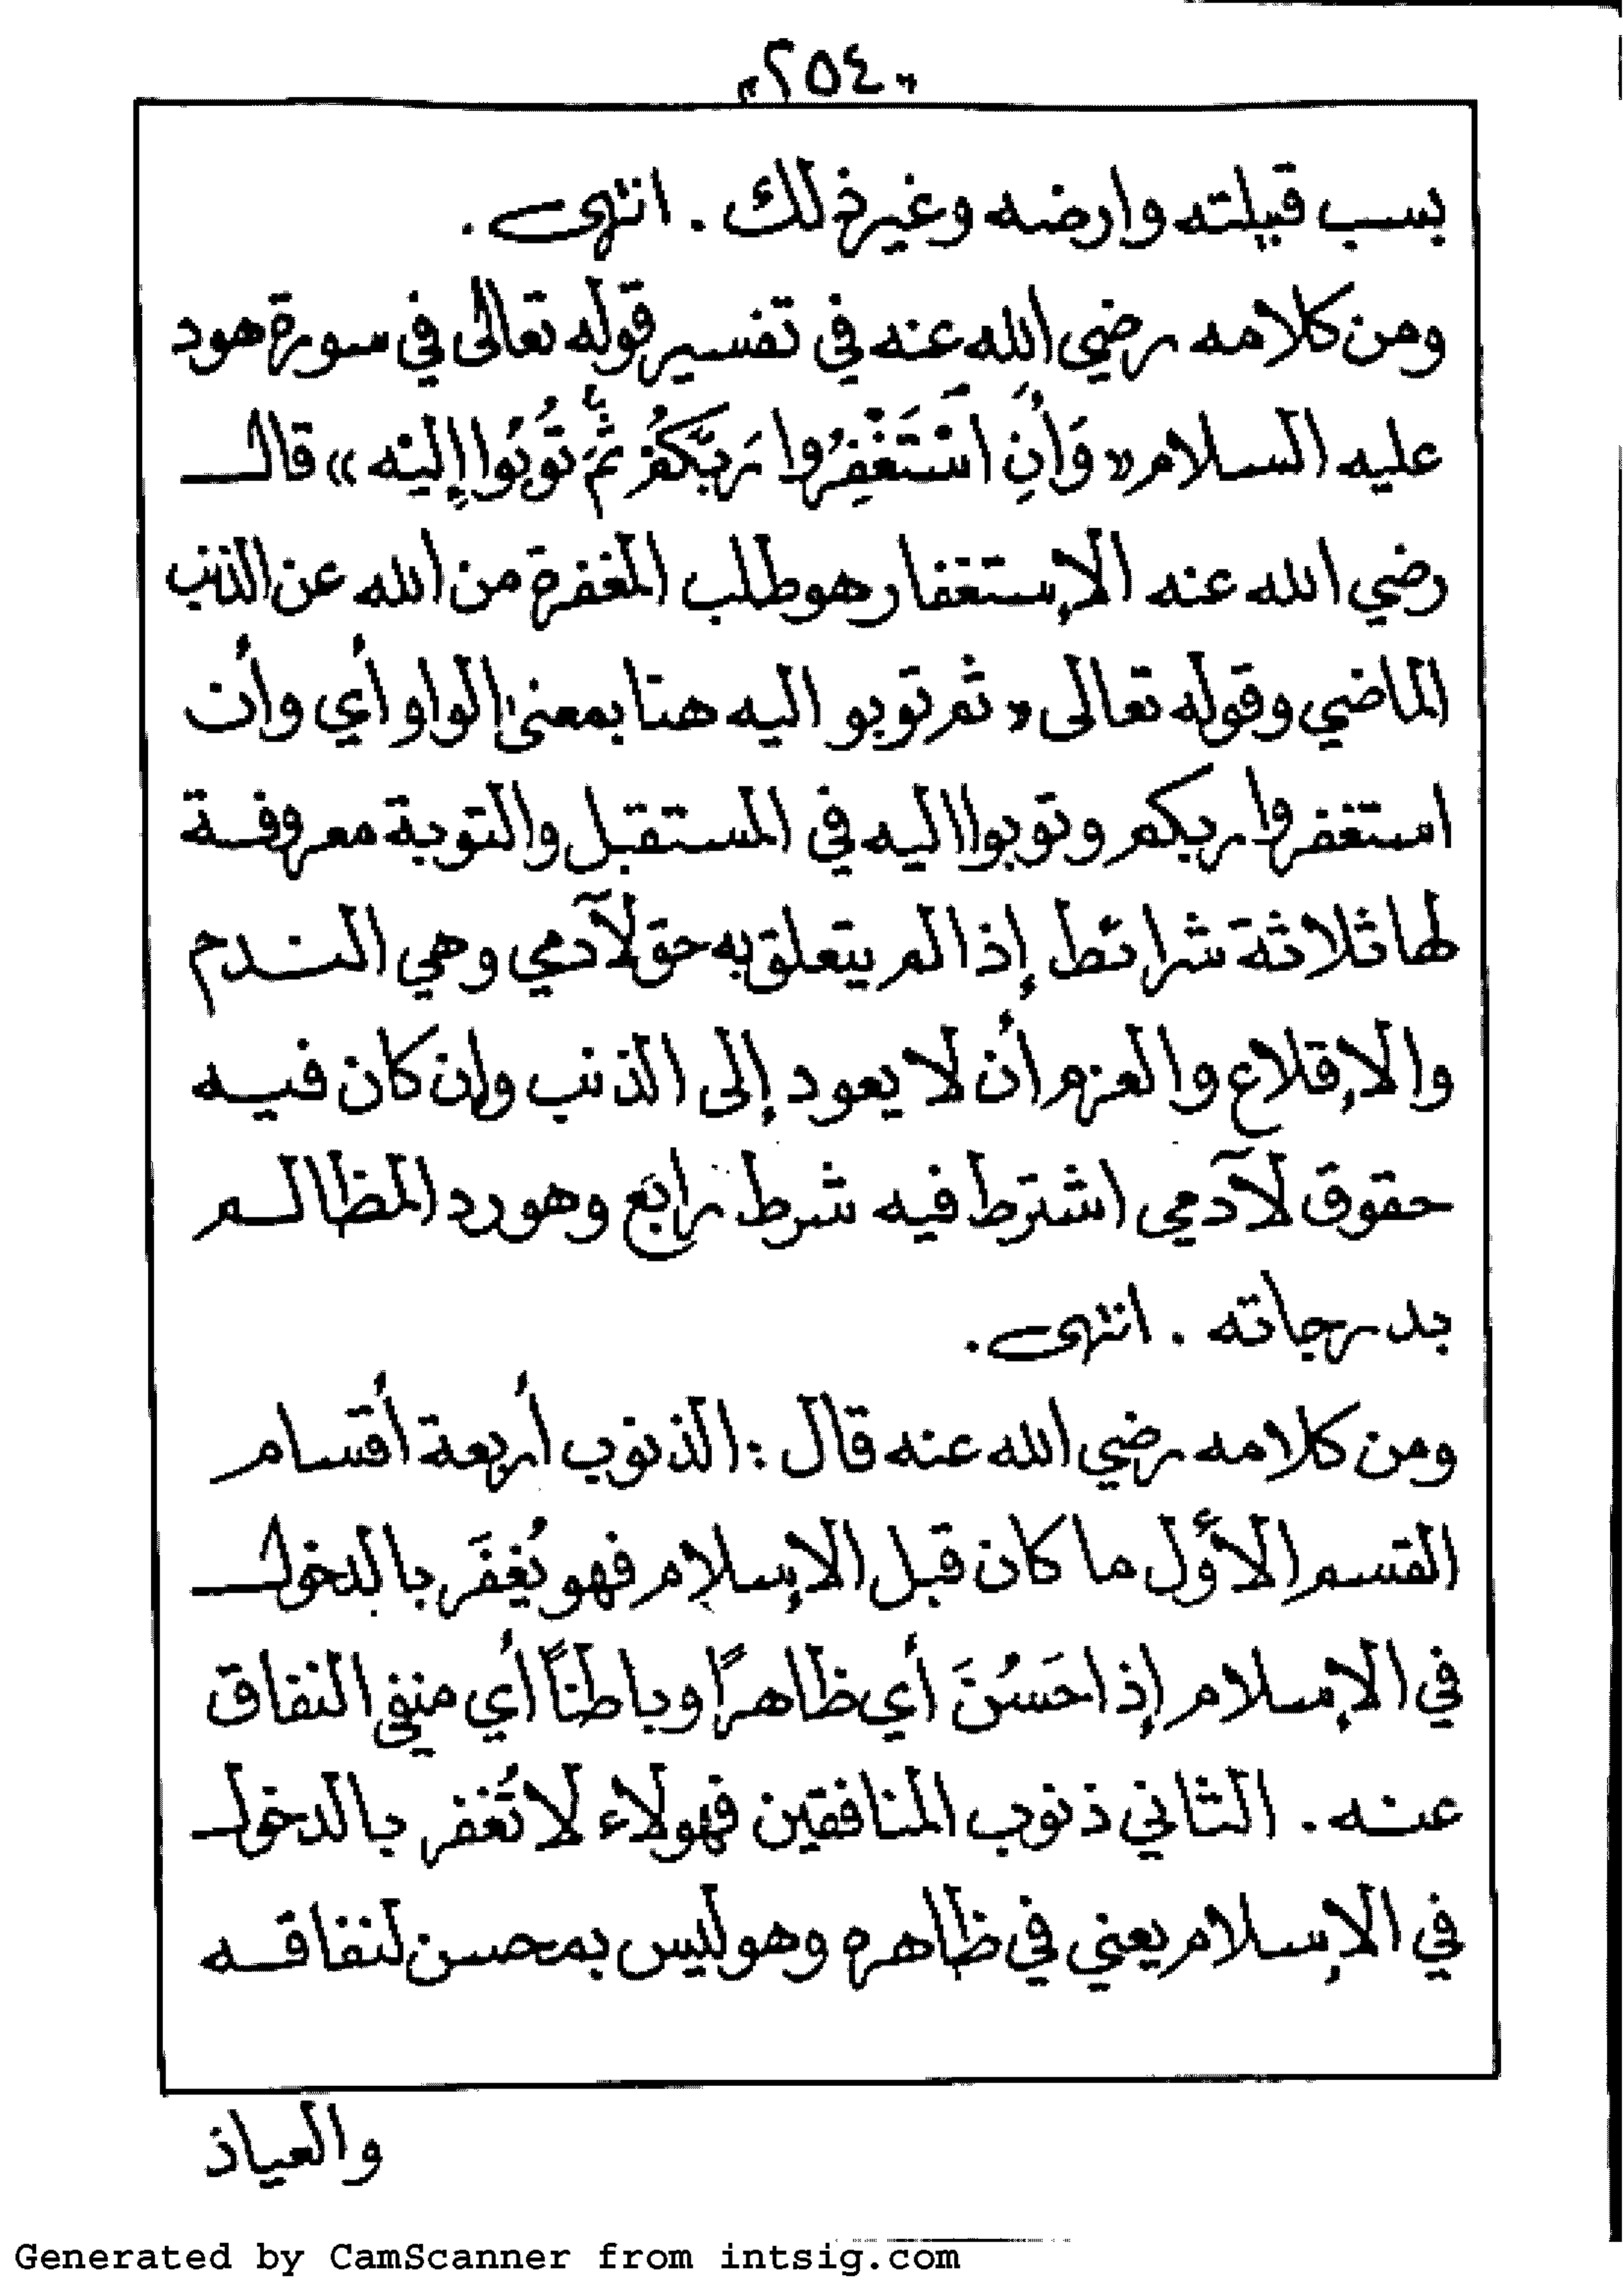 "٢٥٤"
بسب قبيلته وارضه وغير ذلك . انتهى .
ومن كلامه رضي الله عنه في تفسير قوله تعالى في سورة هود
عليه السلام «وَأَنِ اسْتَغْفِرُوا رَبَّكُمْ ثُمَّ تُوبُوا إِلَيْه» قال
رضي الله عنه الإستغفار هو طلب المغفرة من الله عن الذنب
الماضي وقوله تعالى «ثم توبو اليه هنا بمعنى الواو أي وأن
استغفروا ربكم وتوبوا اليه في المستقبل والتوبة معروفة
لها ثلاثة شرائط إذا لم يتعلق به حق لآدمي وهي الندم
والإقلاع والعزم أن لا يعود إلى الذنب وإن كان فيه
حقوق لآدمي اشترط فيه شرط رابع وهو رد المظالم
بدرجاته . انتهى .
ومن كلامه رضي الله عنه قال : الذنوب أربعة أقسام
القسم الأول ما كان قبل الإسلام فهو يُغفَر بالدخول
في الإسلام إذا حَسُنَ أي ظاهرًا وباطنًا أي منفي النفاق
عنه . الثاني ذنوب المنافقين فهولاء لا تُغفر بالدخول
في الإسلام يعني في ظاهره وهو ليس بمحسن لنفاقه
والعياذ
Generated by CamScanner from intsig.com